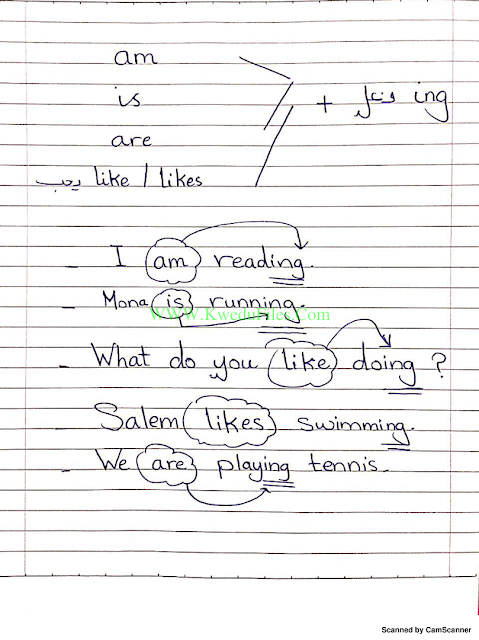 am
is
are
يحب like / likes
+ فعل ing
_ I am reading.
_ Mona is running.
WWW.KweduFiles.Com
_ What do you like doing ?
Salem likes swimming.
_ We are playing tennis.
Scanned by CamScanner